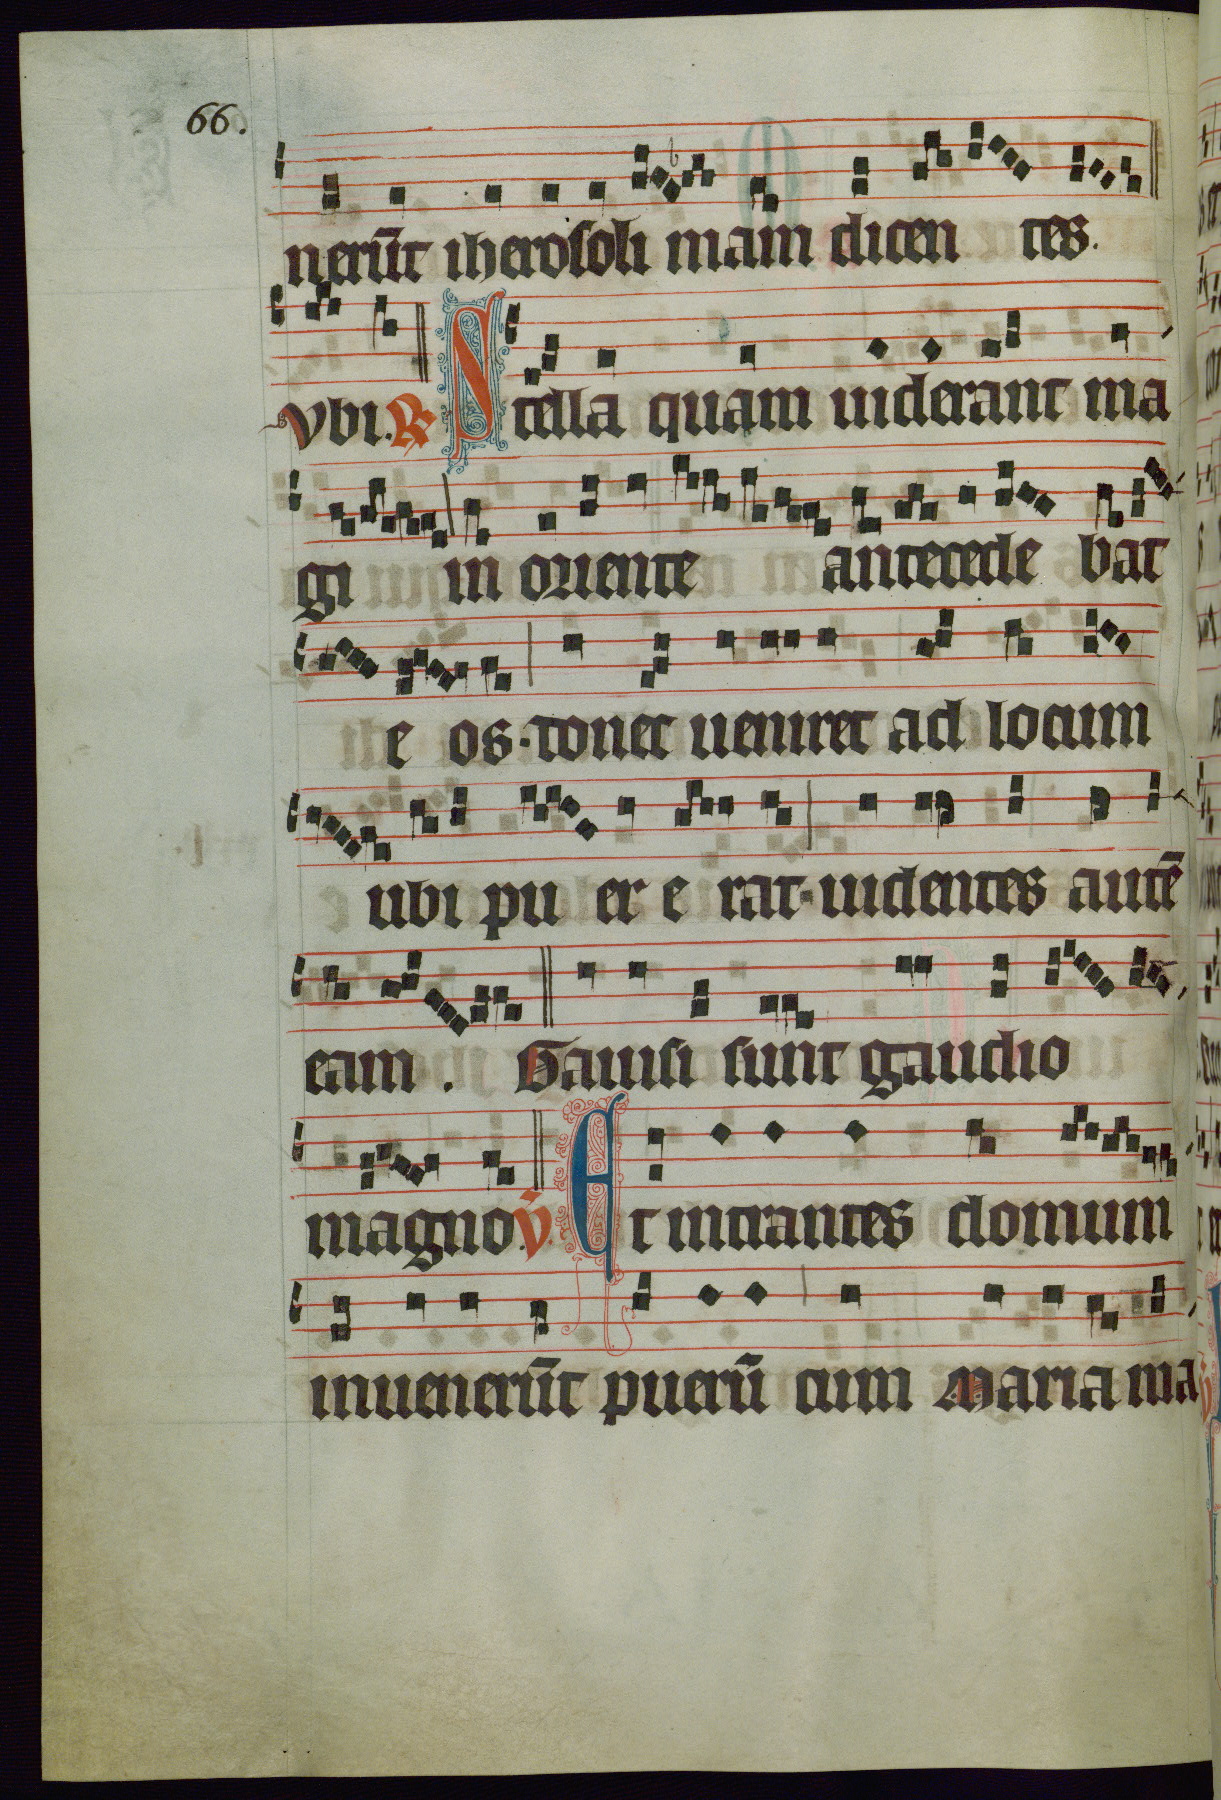 66.
nerūt iherosoli mam dicen tes.
vbi. R Stella quam uiderant ma
gi in oriente antecede bat
e os. donec ueniret ad locum
ubi pu er e rat. uidentes autē
eam. Gauisi sunt gaudio
magno. v. Et intrantes domum
inuenerūt puerū cum Maria ma